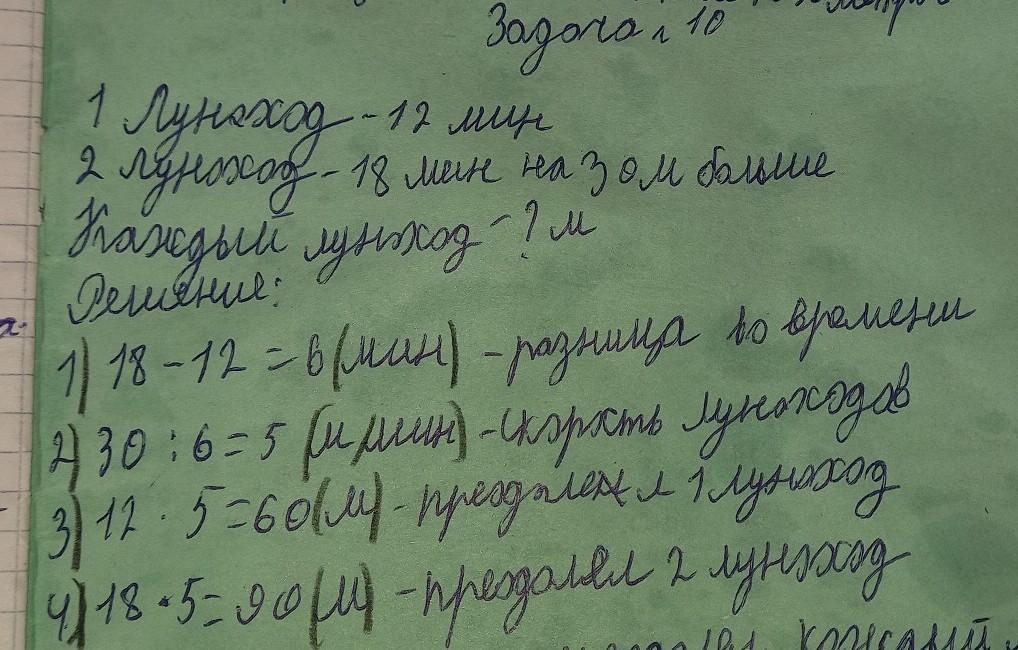 Задача 10
1 Луноход - 12 мин
2 луноход - 18 мин на 30 м больше
Каждый луноход - ? м
Решение:
1) 18 - 12 = 6 (мин) - разница во времени
2) 30 : 6 = 5 (м/мин) - скорость луноходов
3) 12 · 5 = 60 (м) - преодолел 1 луноход
4) 18 · 5 = 90 (м) - преодолел 2 луноход